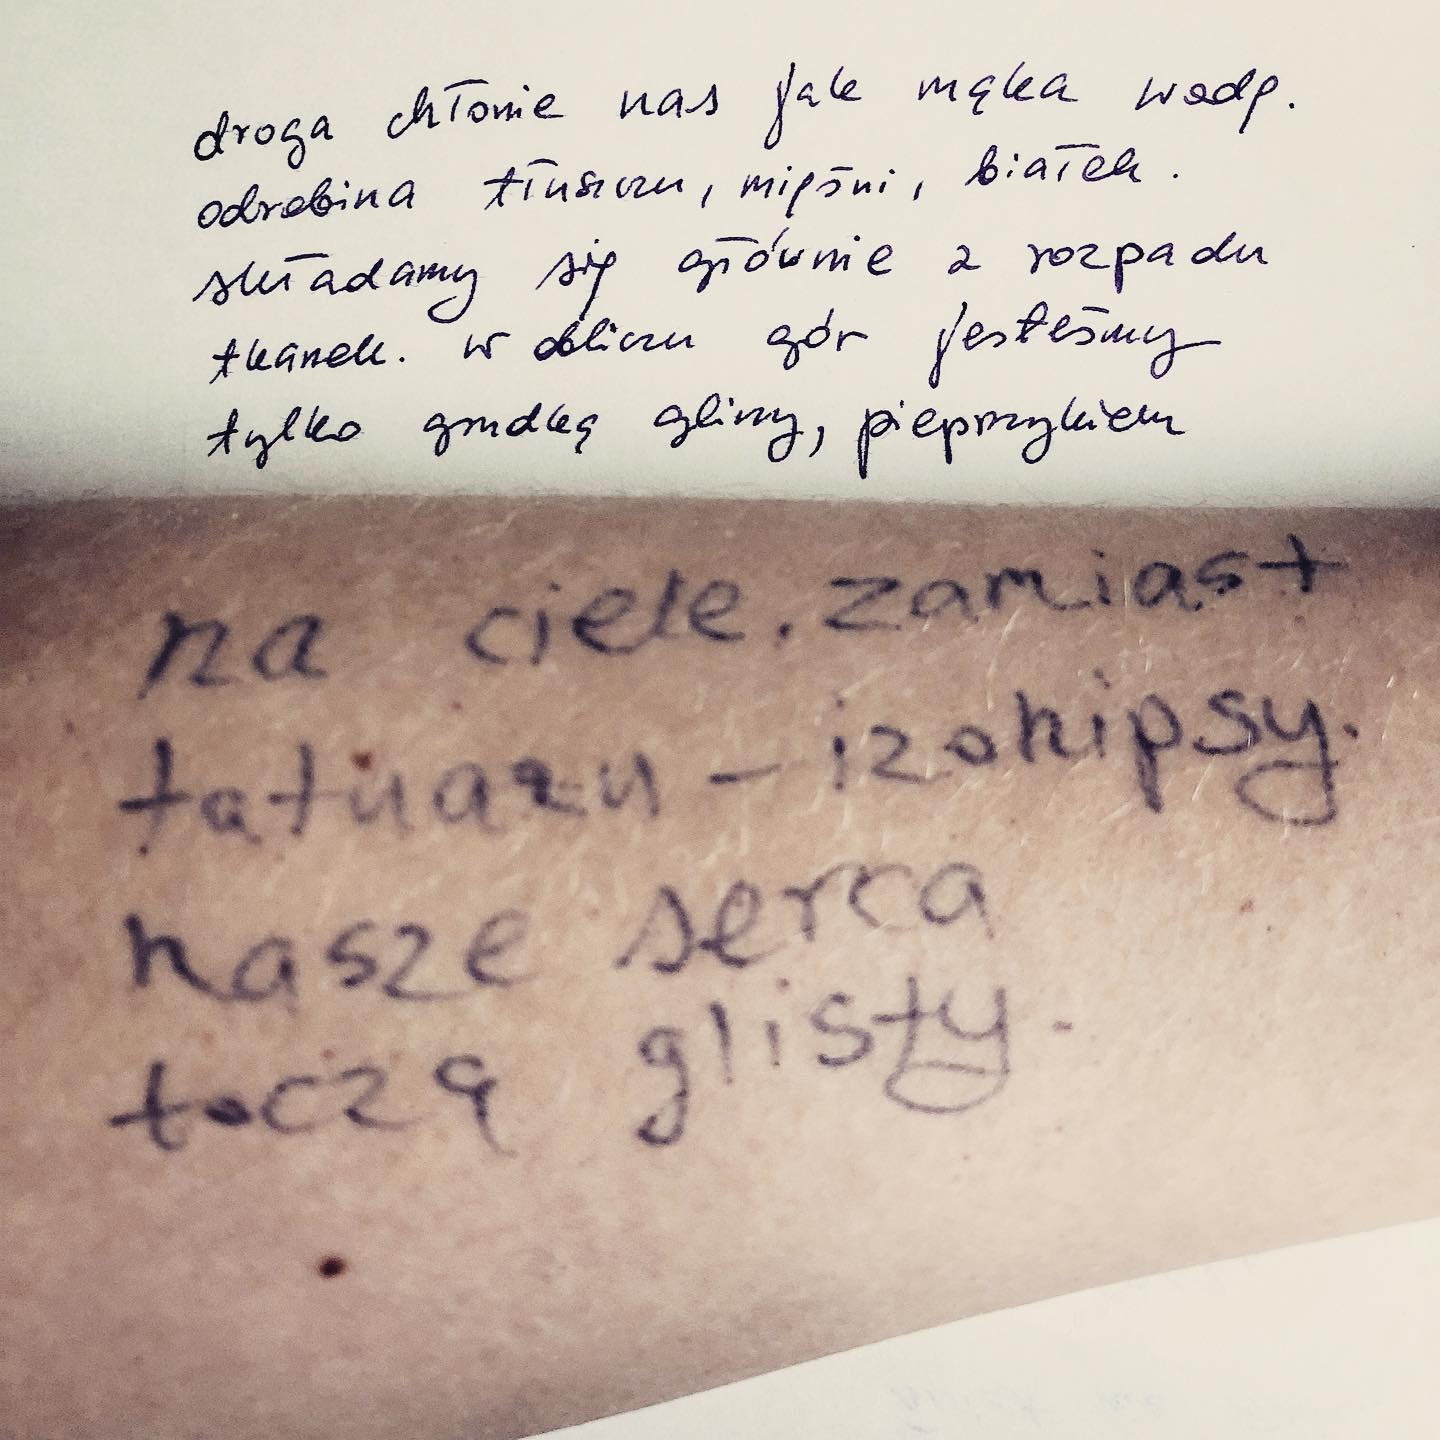 droga chłonie nas jak mąka wodę.
odrobina tłuszczu, mięśni, białek.
składamy się głównie z rozpadu
tkanek. w obliczu gór jesteśmy
tylko grudką gliny, pieprzykiem
na ciele. zamiast
tatuażu – izohipsy.
nasze serca
toczą glisty.